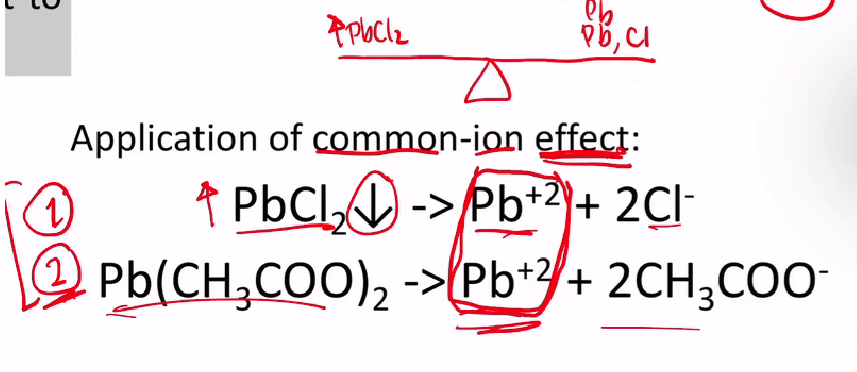 to
Pb
↑PbCl₂ Pb, Cl
Application of common-ion effect:
① ↑ PbCl₂↓ -> Pb⁺² + 2Cl⁻
② Pb(CH₃COO)₂ -> Pb⁺² + 2CH₃COO⁻